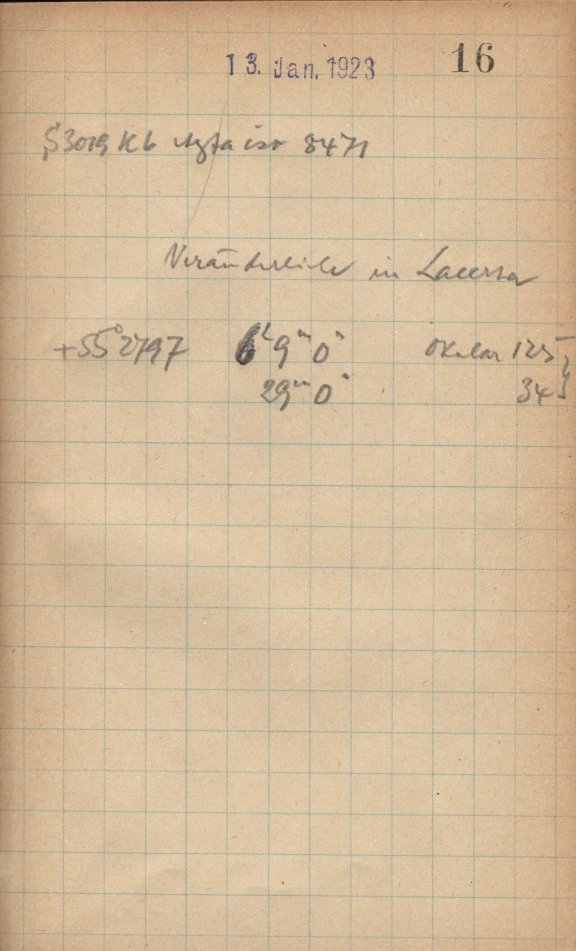 13. Jan. 1923 16
S3019 Kb Agfa iso 8471
Veränderliche in Lacerta
+55° 2797 6h 9m 0s Okular 125
29m 0s 34